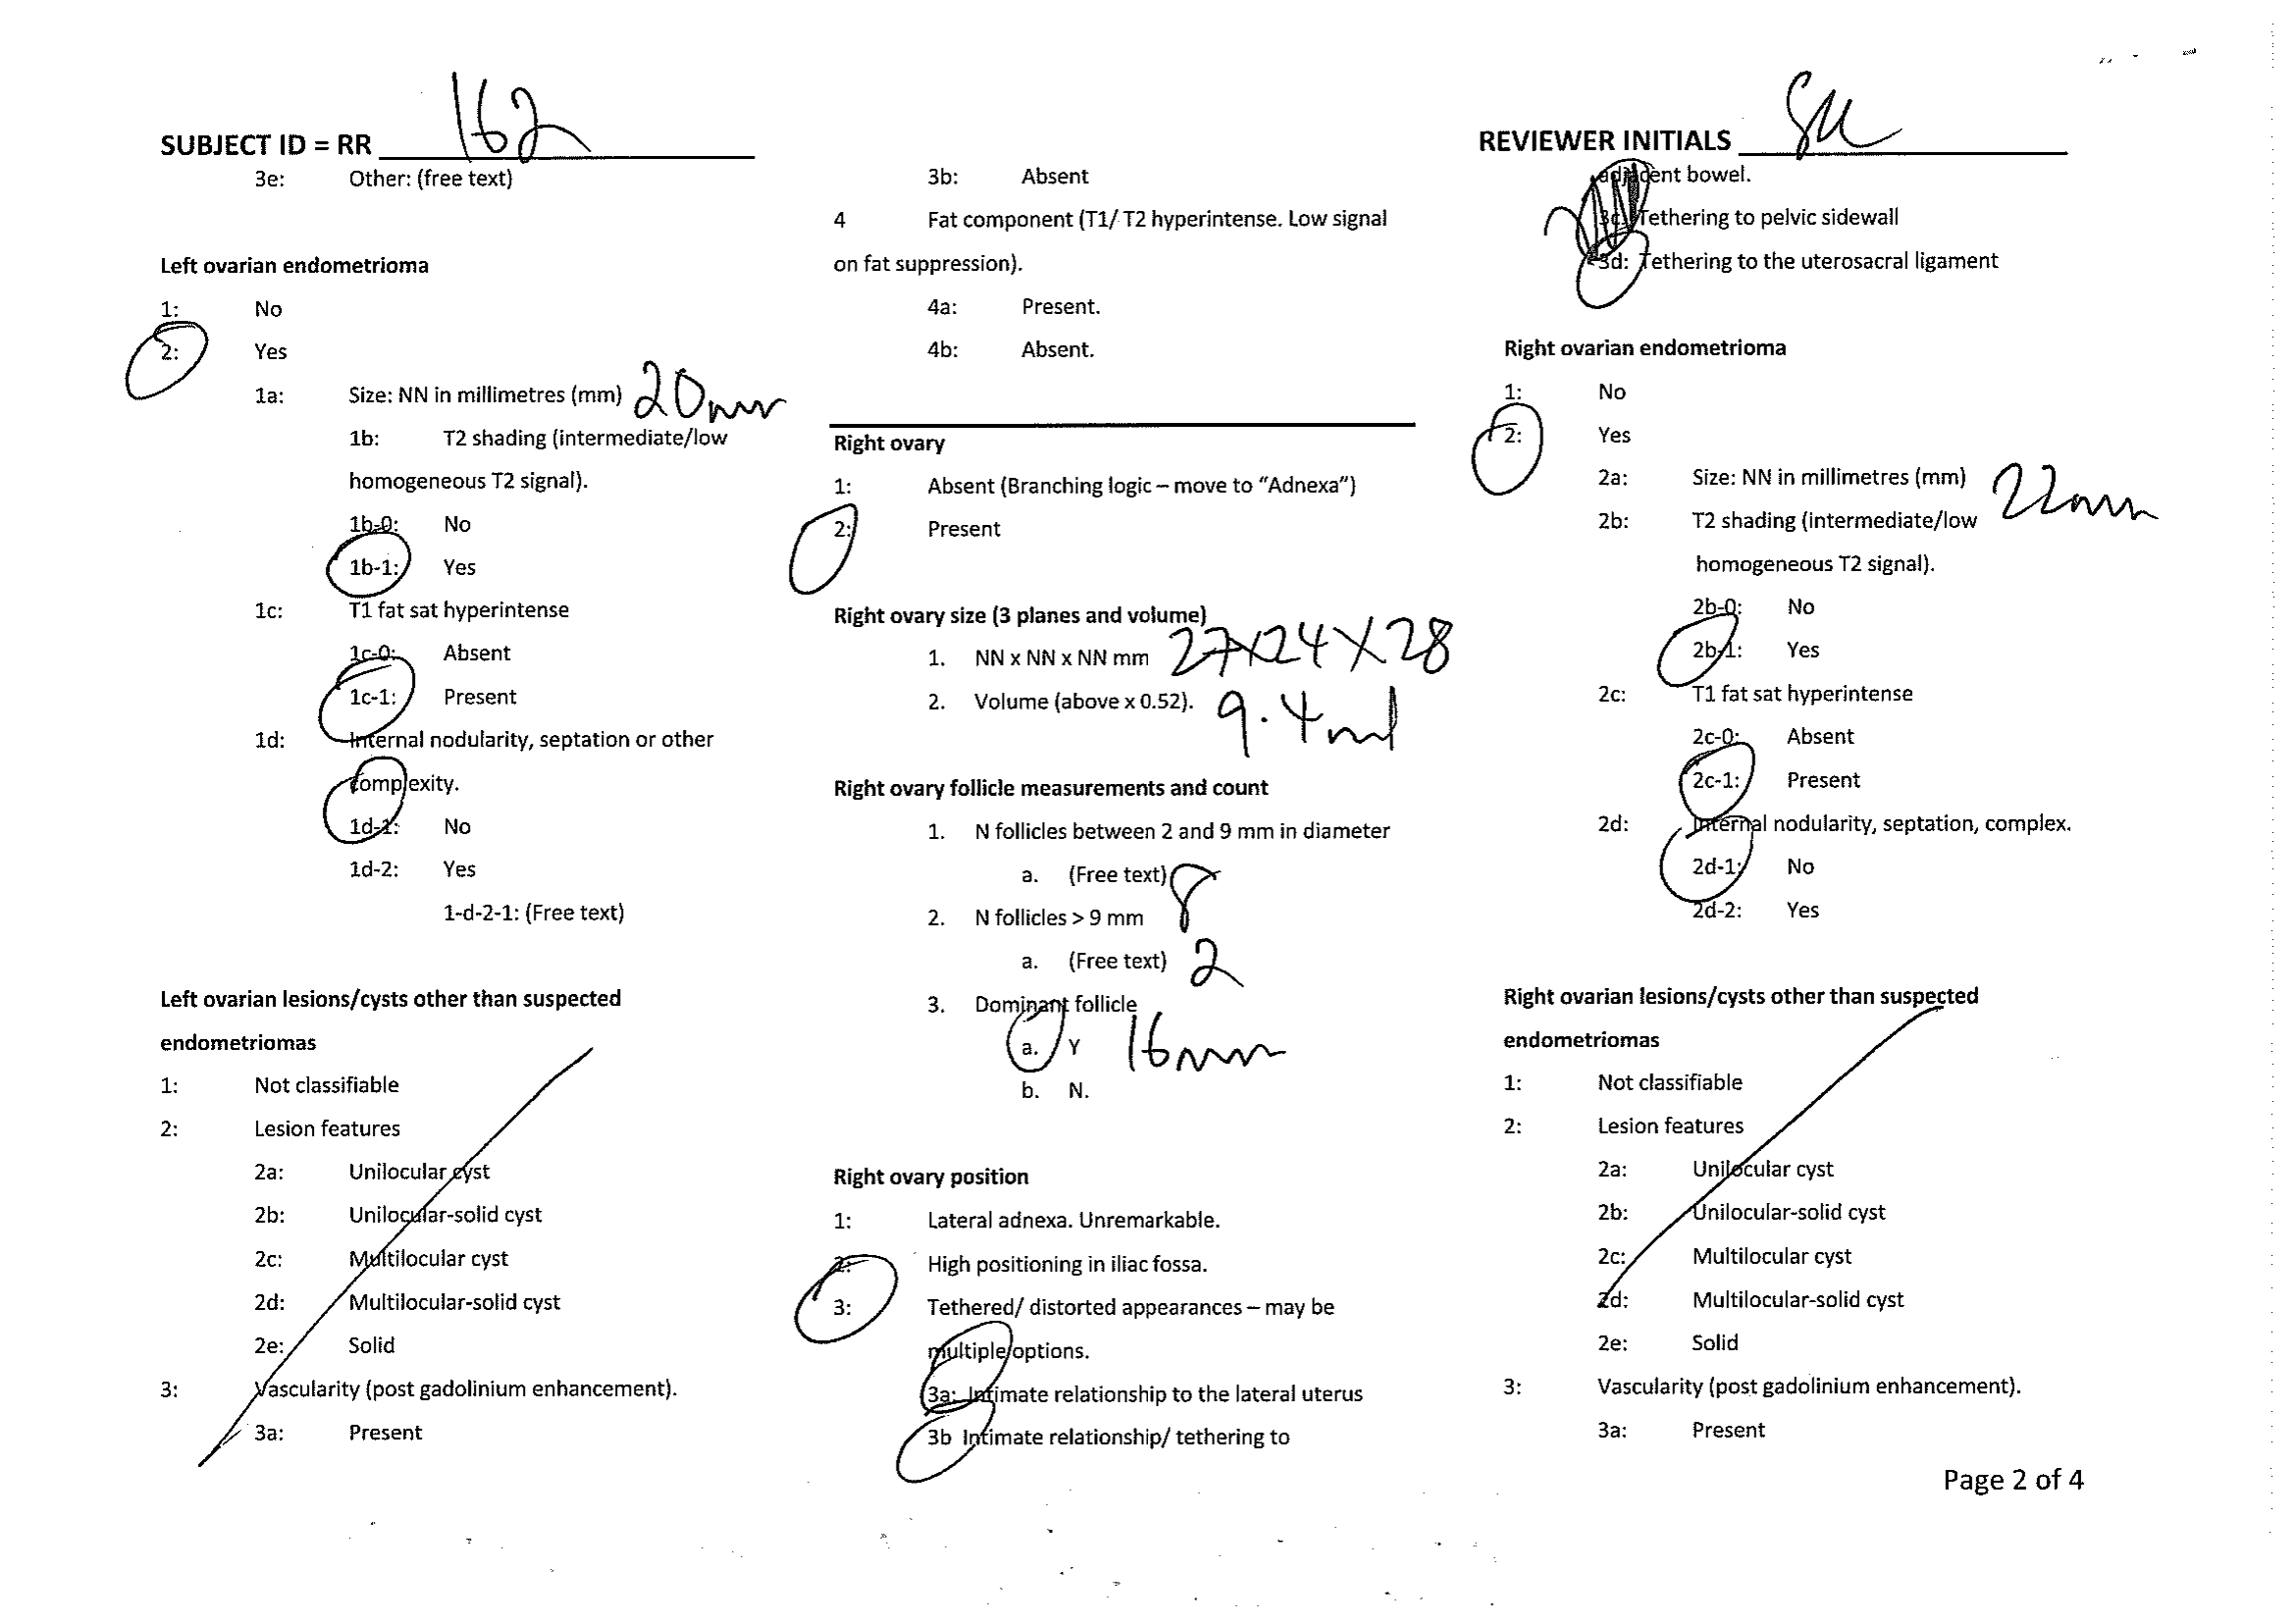 SUBJECT ID = RR 162
3e: Other: (free text)
Left ovarian endometrioma
1: No
2: Yes
1a: Size: NN in millimetres (mm) 20mm
1b: T2 shading (intermediate/low
homogeneous T2 signal).
1b-0: No
1b-1: Yes
1c: T1 fat sat hyperintense
1c-0: Absent
1c-1: Present
1d: Internal nodularity, septation or other
complexity.
1d-1: No
1d-2: Yes
1-d-2-1: (Free text)
Left ovarian lesions/cysts other than suspected
endometriomas
1: Not classifiable
2: Lesion features
2a: Unilocular cyst
2b: Unilocular-solid cyst
2c: Multilocular cyst
2d: Multilocular-solid cyst
2e: Solid
3: Vascularity (post gadolinium enhancement).
3a: Present
3b: Absent
4 Fat component (T1/ T2 hyperintense. Low signal
on fat suppression).
4a: Present.
4b: Absent.
Right ovary
1: Absent (Branching logic – move to “Adnexa”)
2: Present
Right ovary size (3 planes and volume)
1. NN x NN x NN mm 27x24x28
2. Volume (above x 0.52). 9.4ml
Right ovary follicle measurements and count
1. N follicles between 2 and 9 mm in diameter
a. (Free text) 8
2. N follicles > 9 mm
a. (Free text) 2
3. Dominant follicle
a. Y 16mm
b. N.
Right ovary position
1: Lateral adnexa. Unremarkable.
2: High positioning in iliac fossa.
3: Tethered/ distorted appearances – may be
multiple options.
3a: Intimate relationship to the lateral uterus
3b Intimate relationship/ tethering to
REVIEWER INITIALS
adjacent bowel.
3c: Tethering to pelvic sidewall
3d: Tethering to the uterosacral ligament
Right ovarian endometrioma
1: No
2: Yes
2a: Size: NN in millimetres (mm) 22mm
2b: T2 shading (intermediate/low
homogeneous T2 signal).
2b-0: No
2b-1: Yes
2c: T1 fat sat hyperintense
2c-0: Absent
2c-1: Present
2d: Internal nodularity, septation, complex.
2d-1: No
2d-2: Yes
Right ovarian lesions/cysts other than suspected
endometriomas
1: Not classifiable
2: Lesion features
2a: Unilocular cyst
2b: Unilocular-solid cyst
2c: Multilocular cyst
2d: Multilocular-solid cyst
2e: Solid
3: Vascularity (post gadolinium enhancement).
3a: Present
Page 2 of 4